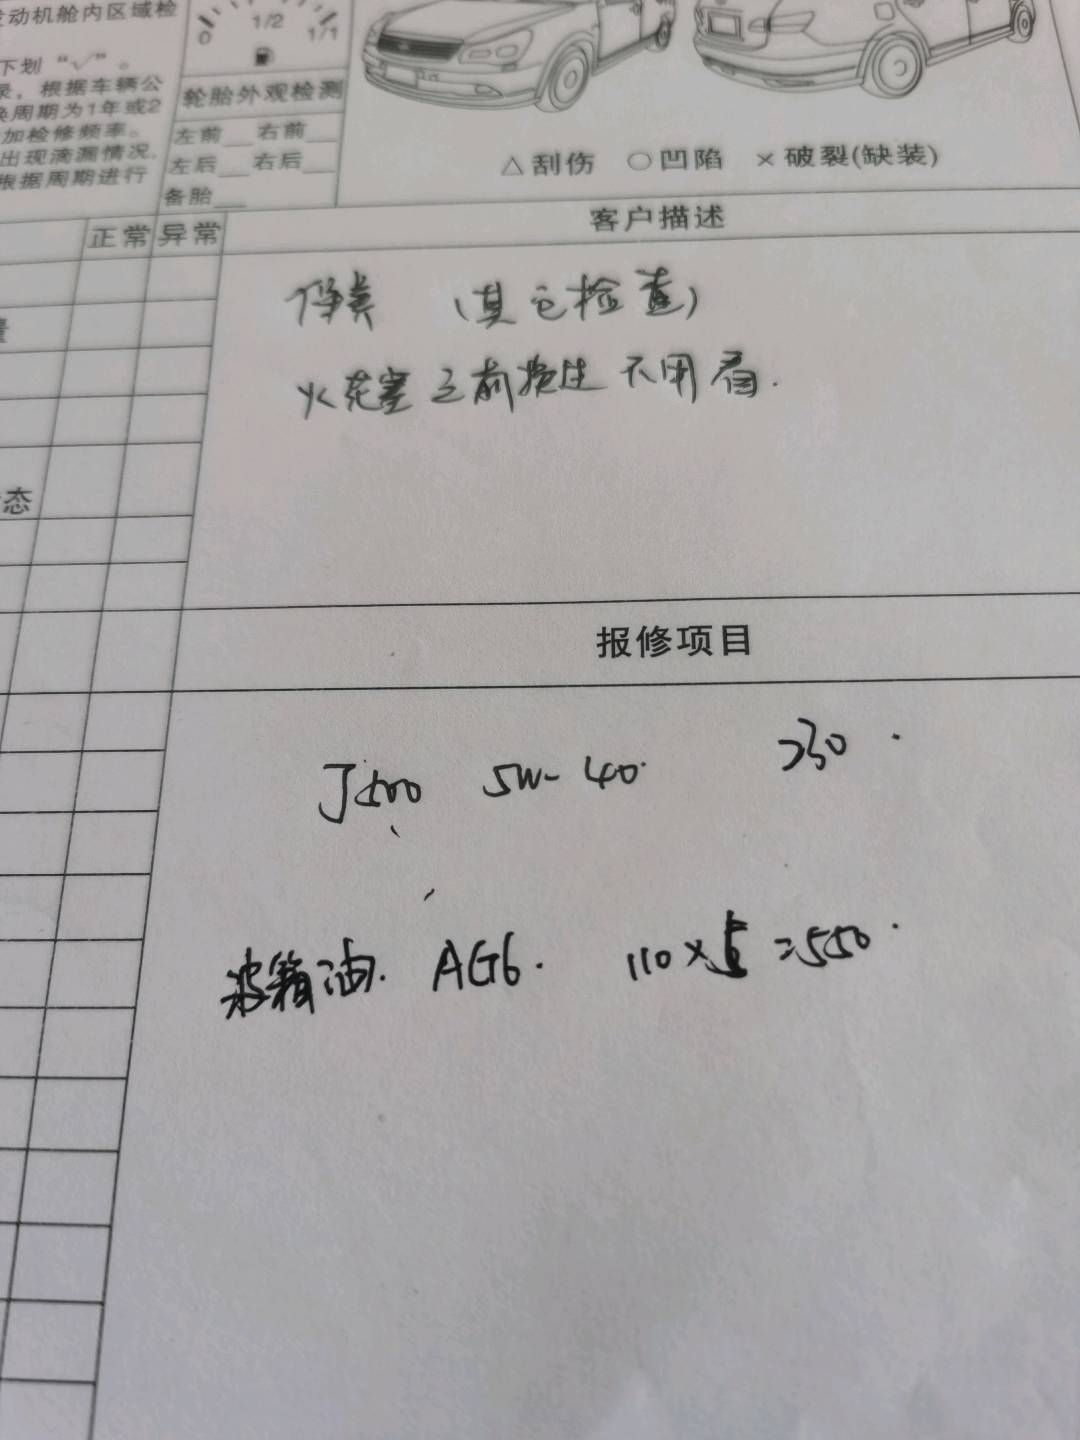 发动机舱内区域检
下划“√”。
录，根据车辆公
换周期为1年或2
加检修频率。
出现滴漏情况，
根据周期进行
0 1/2 1/1
轮胎外观检测
左前__ 右前__
左后__ 右后__
备胎__
△刮伤 ○凹陷 ×破裂(缺装)
正常 异常
客户描述
保养 (其它检查)
火花塞之前换过 不用看.
态
报修项目
J500 5W-40. 230.
波箱油. AG6. 110×5=550.